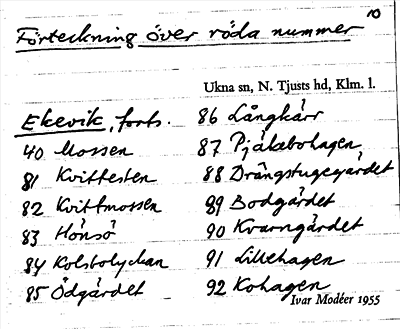 10
Förteckning över röda nummer
Ukna sn, N. Tjusts hd, Klm. l.
Ekevik, forts.
40 Mossen
81 Kvittesten
82 Kvittmossen
83 Hönsö
84 Kolsbolyckan
85 Ödgärdet
86 Långkärr
87 Pjäkebohagen
88 Drängstugegärdet
89 Bodgärdet
90 Kvarngärdet
91 Lillehagen
92 Kohagen
Ivar Modéer 1955